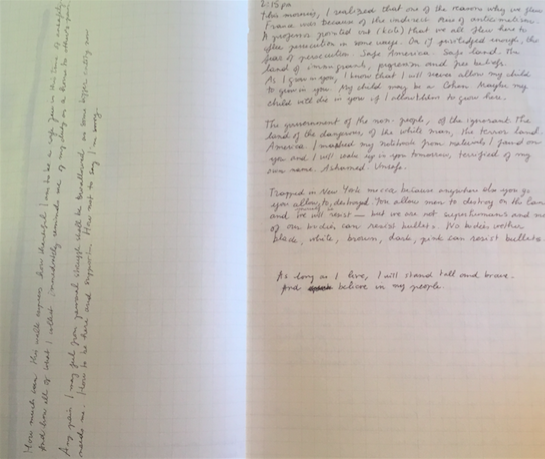 How much can this write express how thankful I am to be a safe Jew in the time to
And how all of what I called immediately reminds me of my being or a home to others
Any pain I may feel from personal struggle shall be swallowed as some bigger entity now
needs me. How to be here and support. How not to say I'm sorry.
2:15 pm
This morning, I realized that one of the reasons why we flew
France was because of the undirect fear of antisemitism.
A professor pointed out (Kols) that we all flew here to
flee persecution in some ways. Or if priviledged enough, the
fear of persecution. Safe America. Safe land. The
land of immigrants, progressism and free beliefs.
As I grow in you, I know that I will never allow my child
to grow in you. My child may be a Cohen. Maybe my
child will die in you if I allow them to grow here.
The government of the non-people, of the ignorant. The
land of the dangerous, of the white man, the terror land.
America I washed my notebook from materials I found on
you and I will wake up in you tomorrow, terrified of my
own name. Ashamed. Unsafe.
Trapped in New York mecca because anywhere else you go
you allow to destroyed. You allow men to destroy on the land
and we will resist — but we are not superhumans and none
of our bodies can resist bullets. No bodies wether
black, white, brown, dark, pink can resist bullets
As long as I live, I will stand tall and brave.
And believe in my people.